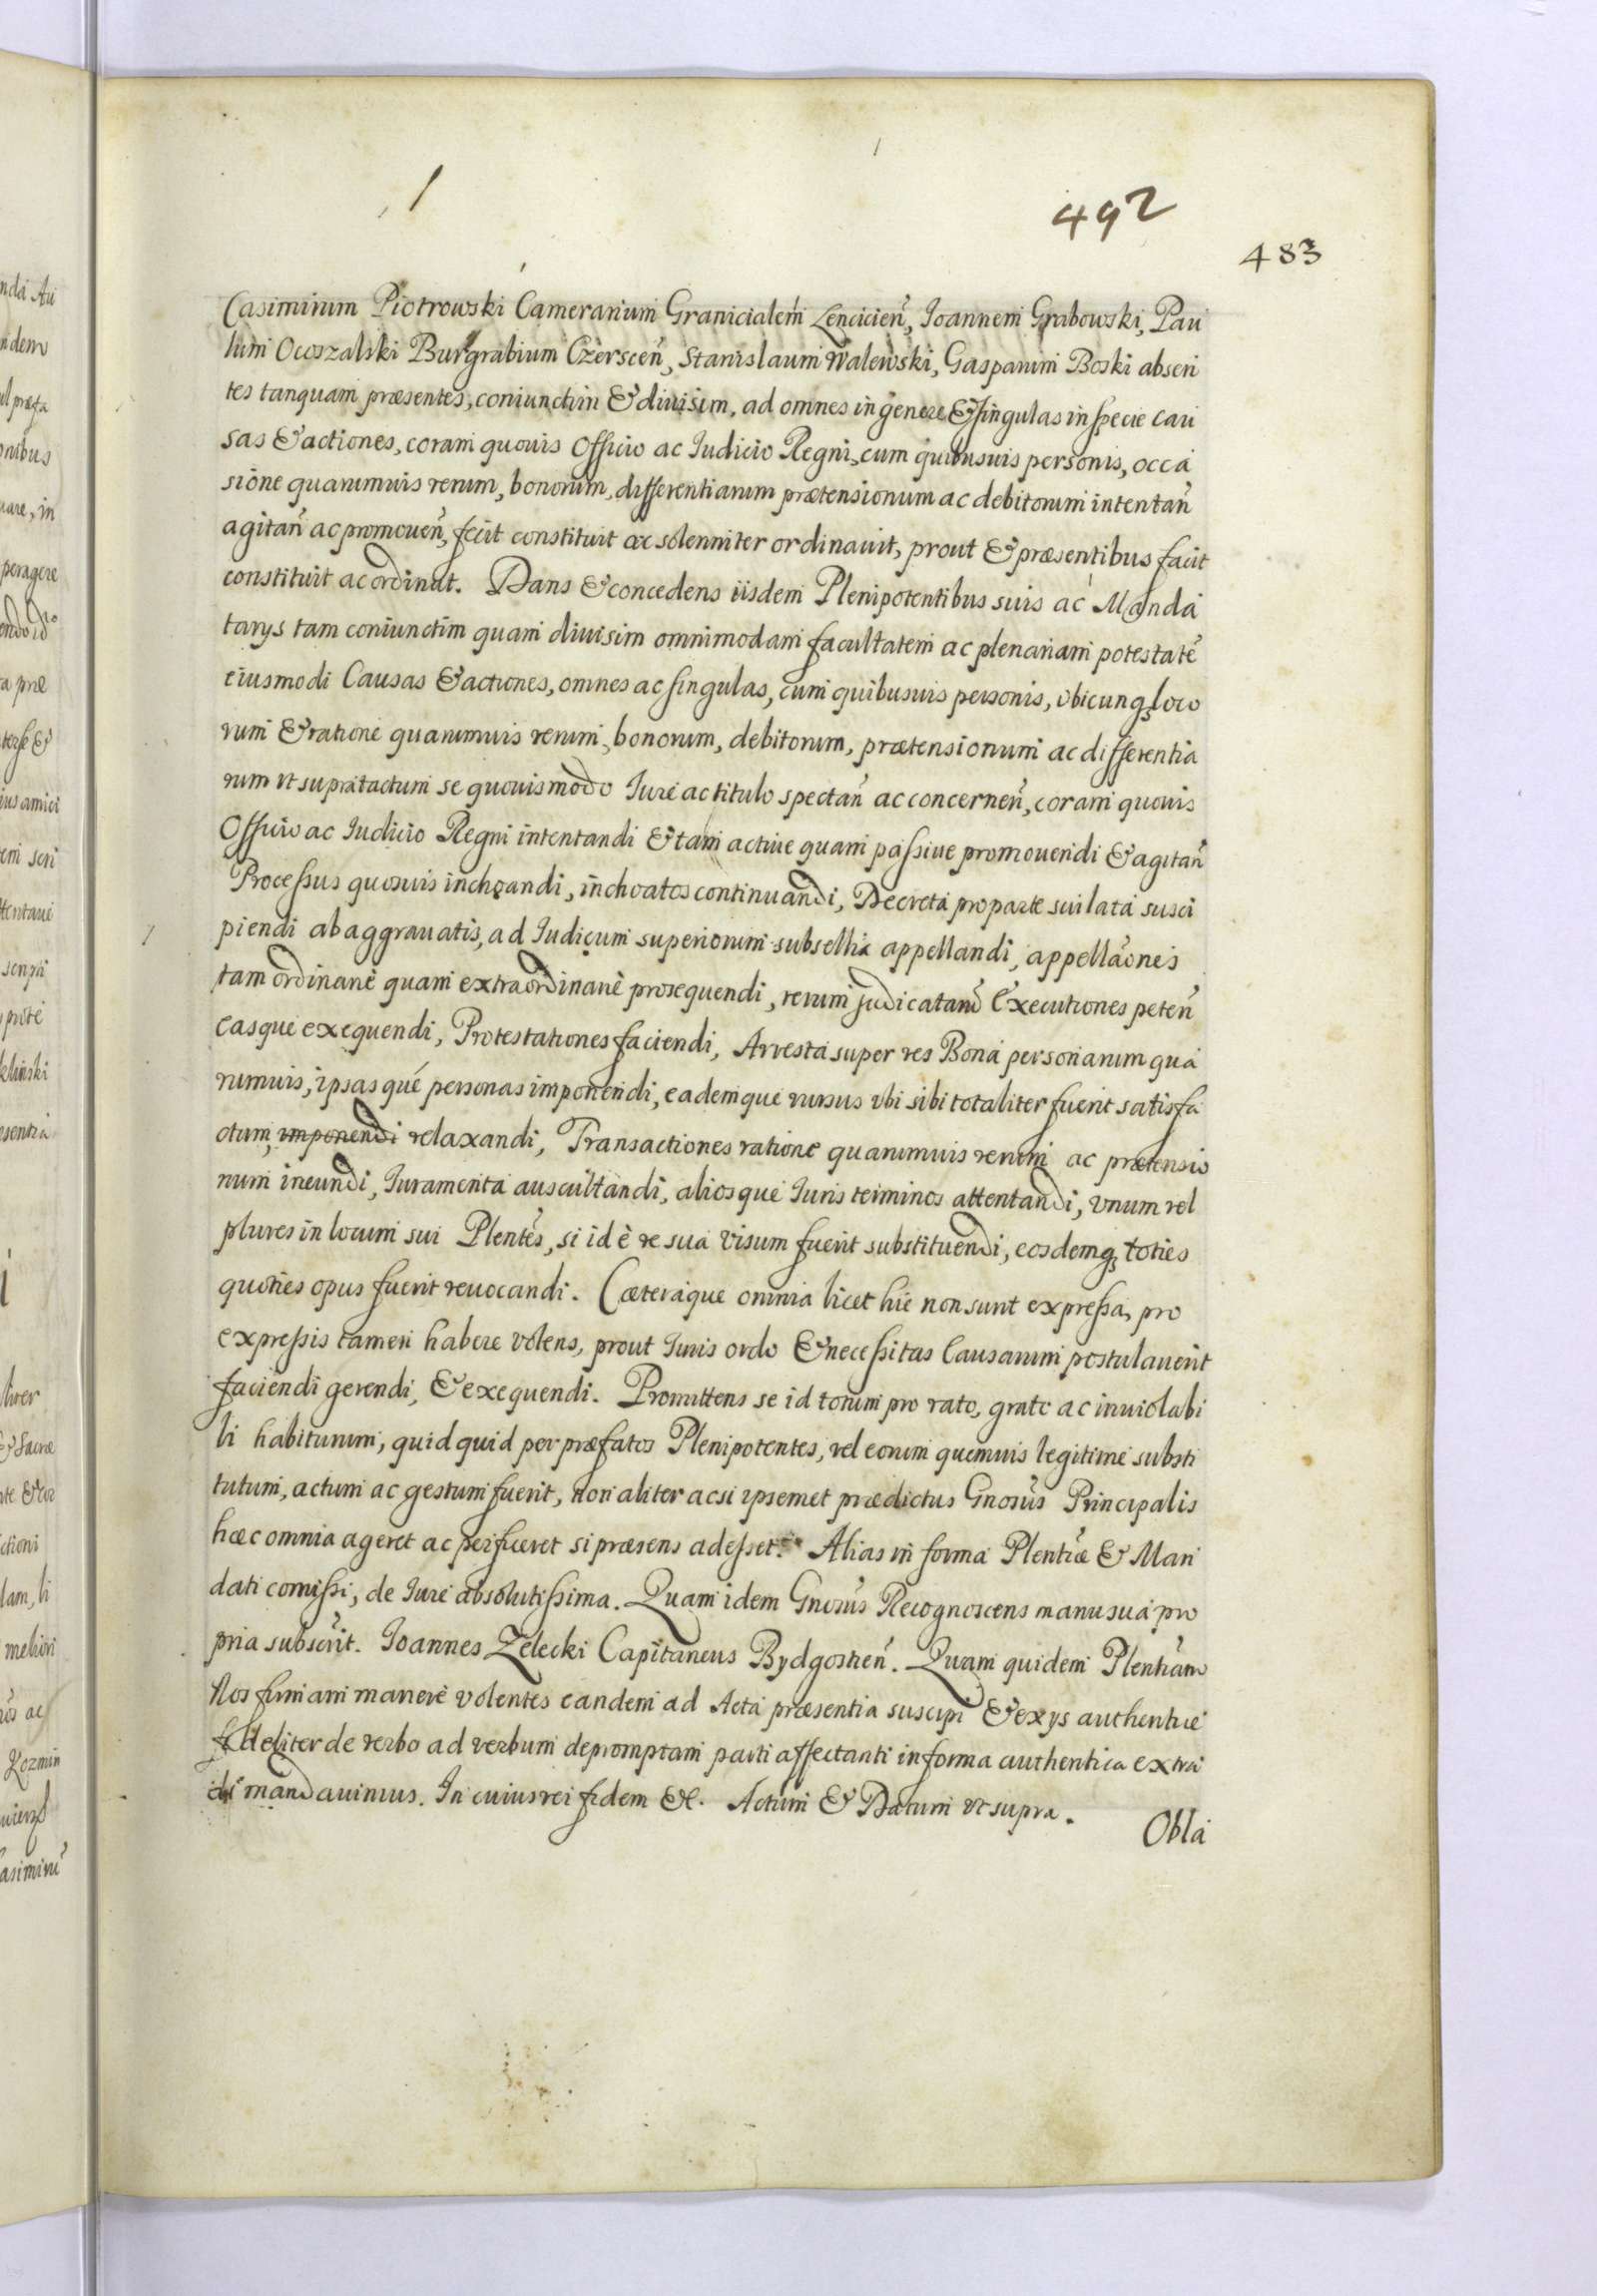 492
483
Casimirum Piotrowski Camerarium Granicialem Lencicien̄, Joannem Grabowski, Pau
lum Ocoszalski Burgrabium Czerscen̄, Stanislaum Walewski, Gasparum Boski absen
tes tanquam præsentes, coniunctim & diuisim, ad omnes in genere & singulas in specie cau
sas & actiones, coram quouis Officio ac Iudicio Regni, cum quibusuis personis, occa
sione quarumuis rerum, bonorum, differentiarum prætensionum ac debitorum intentan̄
agitan̄ ac promouen̄, fecit constituit ac solenniter ordinauit, prout & præsentibus facit
constituit ac ordinat. Dans & concedens iisdem Plenipotentibus suis ac Manda
tarys tam coniunctim quam diuisim omnimodam facultatem ac plenariam potestatē
eiusmodi Causas & actiones, omnes ac singulas, cum quibusuis personis, vbicunqꝫ loco
rum & ratione quarumuis rerum, bonorum, debitorum, prætensionum ac differentia
rum vt supra tactum se quouismodo Iure ac titulo spectan̄ ac concernen̄, coram quouis
Officio ac Iudicio Regni intentandi & tam actiue quam passiue promouendi & agitan̄
Processus quosuis inchoandi, inchoatos continuandi, Decreta pro parte sui lata susci
piendi ab aggrauatis, ad Iudicum superiorum subsellia appellandi, appellāones
tam ordinariè quam extraordinariè prosequendi, rerum judicatarū Executiones peten̄
easque exequendi, Protestationes faciendi, Arresta super res Bona personarum qua
rumuis, ipsasque personas imponendi, eademque rursus vbi sibi totaliter fuerit satisfa
ctum, imponendi relaxandi, Transactiones ratione quarumuis rerum ac prætensio
num ineundi, Iuramenta auscultandi, aliosque Iuris terminos attentandi, vnum vel
plures in locum sui Plentēs, si id è re sua visum fuerit substituendi, eosdemqꝫ toties
quoties opus fuerit reuocandi. Cæteraque omnia licet hic non sunt expressa, pro
expressis tamen habere volens, prout Iuris ordo & necessitas Causarum postulauerit
faciendi gerendi, & exequendi. Promittens se id totum pro rato, grato ac inuiolabi
li habiturum, quid quid per præfatos Plenipotentes, vel eorum quemuis legitime substi
tutum, actum ac gestum fuerit, non aliter acsi ipsemet prædictus Gnosūs Principalis
hæc omnia ageret ac perficeret si præsens adesset. Alias in forma Plentiæ & Man
dati comissi, de Iure absolutissima. Quam idem Gnosūs Recognoscens manu sua pro
pria subscrīt. Joannes Zelecki Capitaneus Bydgostien̄. Quam quidem Plentiam
Nos firmam manere volentes eandem ad Acta præsentia suscipi & ex ys authentice
fideliter de verbo ad verbum depromptam parti affectanti in forma authentica extra
di mandauimus. In cuius rei fidem &c. Actum & Datum vt supra.
Obla